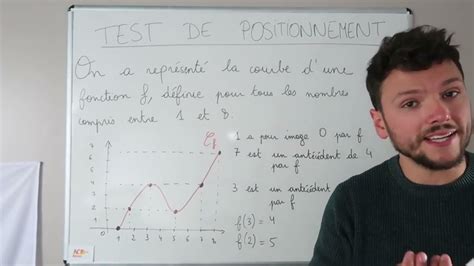 TEST DE POSITIONNEMENT
On a représenté la courbe d'une
fonction f, définie pour tous les nombres
compris entre 1 et 8.
Cf
1 a pour image 0 par f
7 est un antécédent de 4
par f
3 est un antécédent
par f
f(3) = 4
f(2) = 5
6
5
4
3
2
1 2 3 4 5 6 7 8